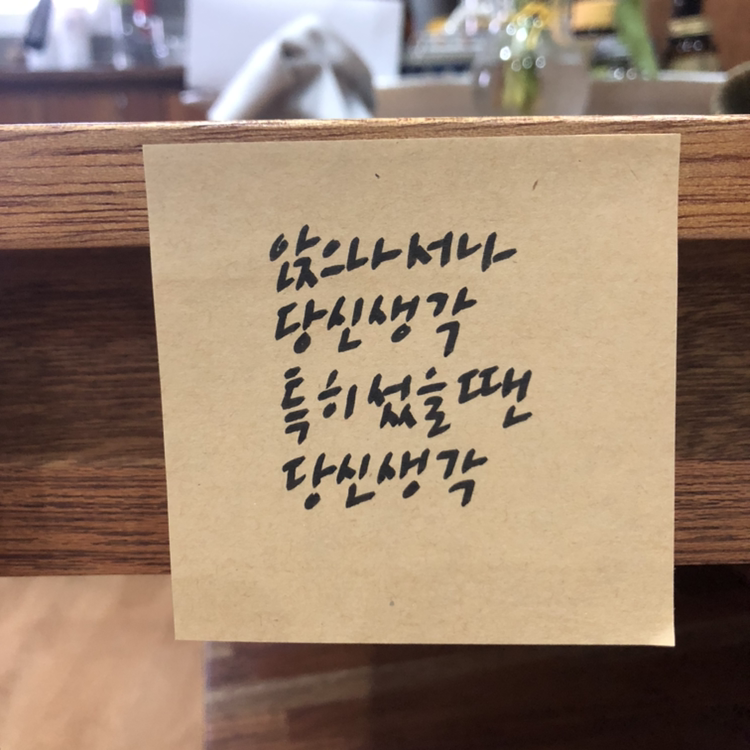 앉으나 서나
당신생각
특히 섰을 땐
당신생각